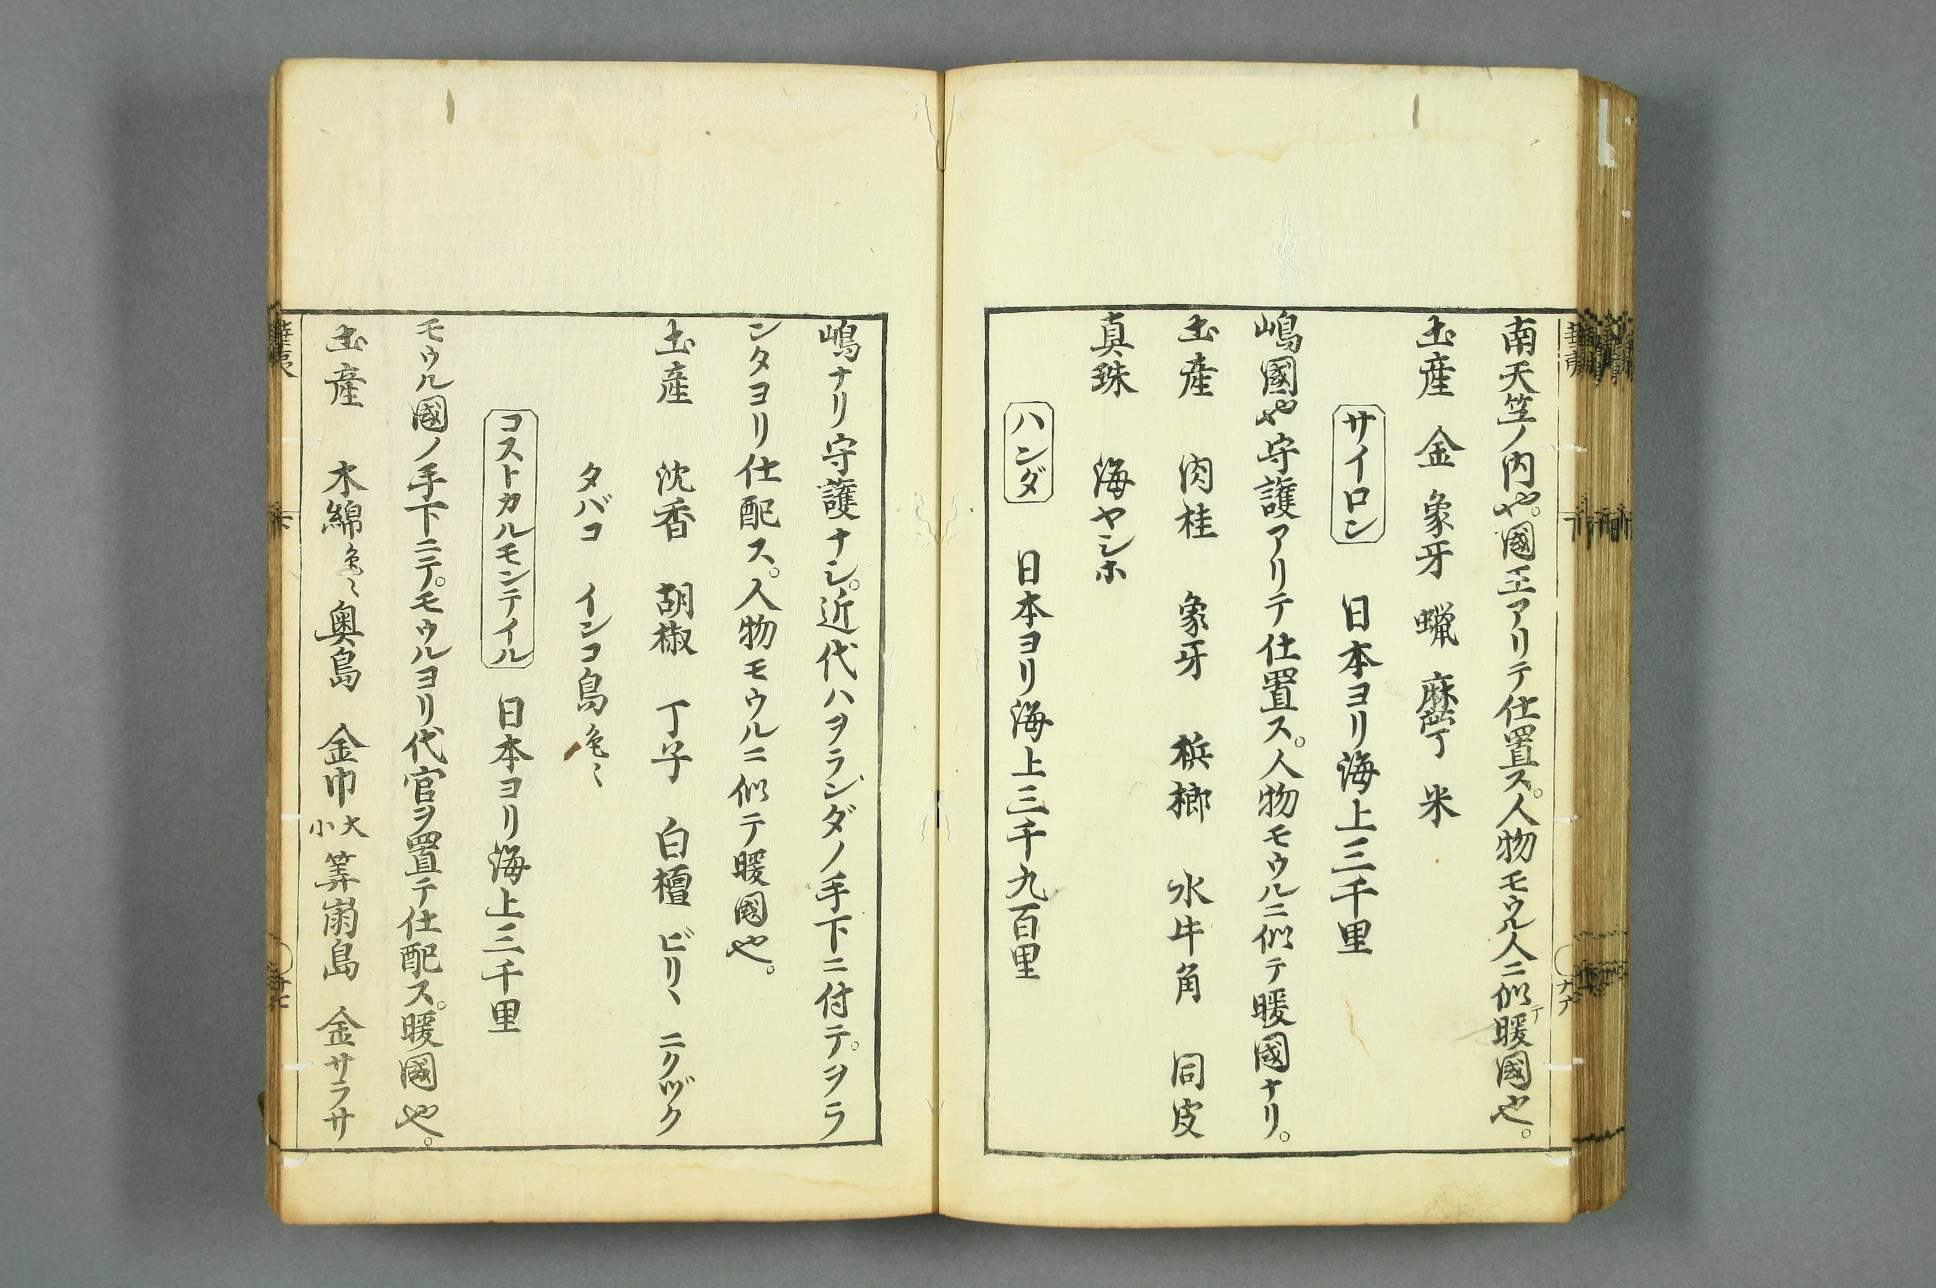 南天竺ノ内也。國王アリテ仕置ス。人物モウル人ニ似テ暖國也。
土産 金 象牙 蝋 麻苧 米
サイロン 日本ヨリ海上三千里
嶋國也守護アリテ仕置ス。人物モウルニ似テ暖國ナリ。
土産 肉桂 象牙 梹榔 水牛角 同皮
真珠 海ヤシホ
ハンダ 日本ヨリ海上三千九百里
嶋ナリ守護ナシ。近代ハヲランダノ手下ニ付テ。ヲラ
ンタヨリ仕配ス。人物モウルニ似テ暖國也。
土産 沈香 胡椒 丁子 白檀 ビリヽ ニクヅク
タバコ インコ鳥色〻
コストカルモンテイル 日本ヨリ海上三千里
モウル國ノ手下ニテ。モウルヨリ代官ヲ置テ仕配ス。暖國也。
土産 木綿色〻 奥島 金巾大小 筭崩島 金サラサ
華夷